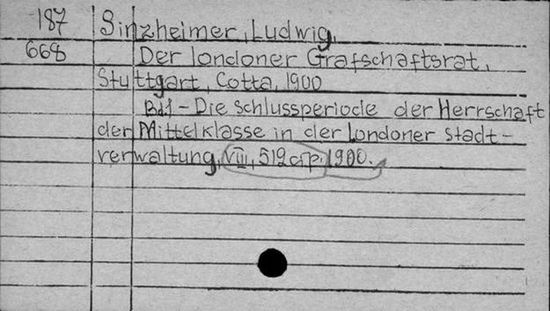 187 Sinzheimer, Ludwig,
668 Der londoner Grafschaftsrat.
Stuttgart, Cotta, 1900
Bd1 - Die schlussperiode der Herrschaft
der Mittelklasse in der londoner stadt-
verwaltung, VIII, 519 c/p. 1900.